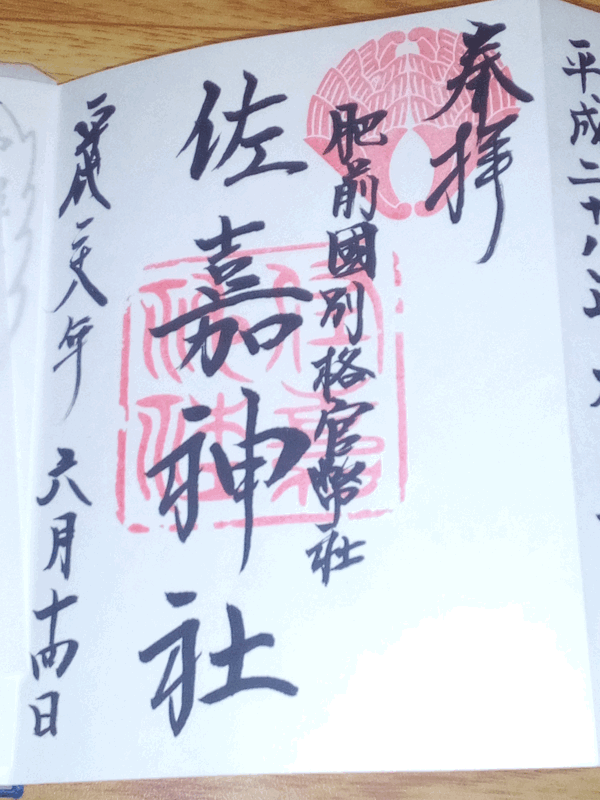 平成二十八年
奉拝
肥前國別格官幣社
佐嘉神社
平成二十八年 六月十四日